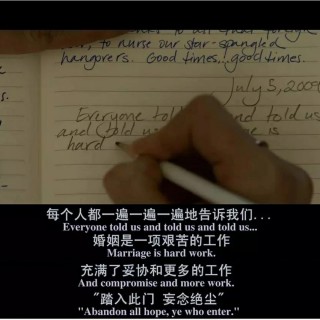 to all that foreign
to nurse our star-spangled
hangovers. Good times, good times.
July 5, 200
Everyone told us and told us
and told us is
hard
每个人都一遍一遍一遍地告诉我们...
Everyone told us and told us and told us...
婚姻是一项艰苦的工作
Marriage is hard work.
充满了妥协和更多的工作
And compromise and more work.
"踏入此门 妄念绝尘"
"Abandon all hope, ye who enter."